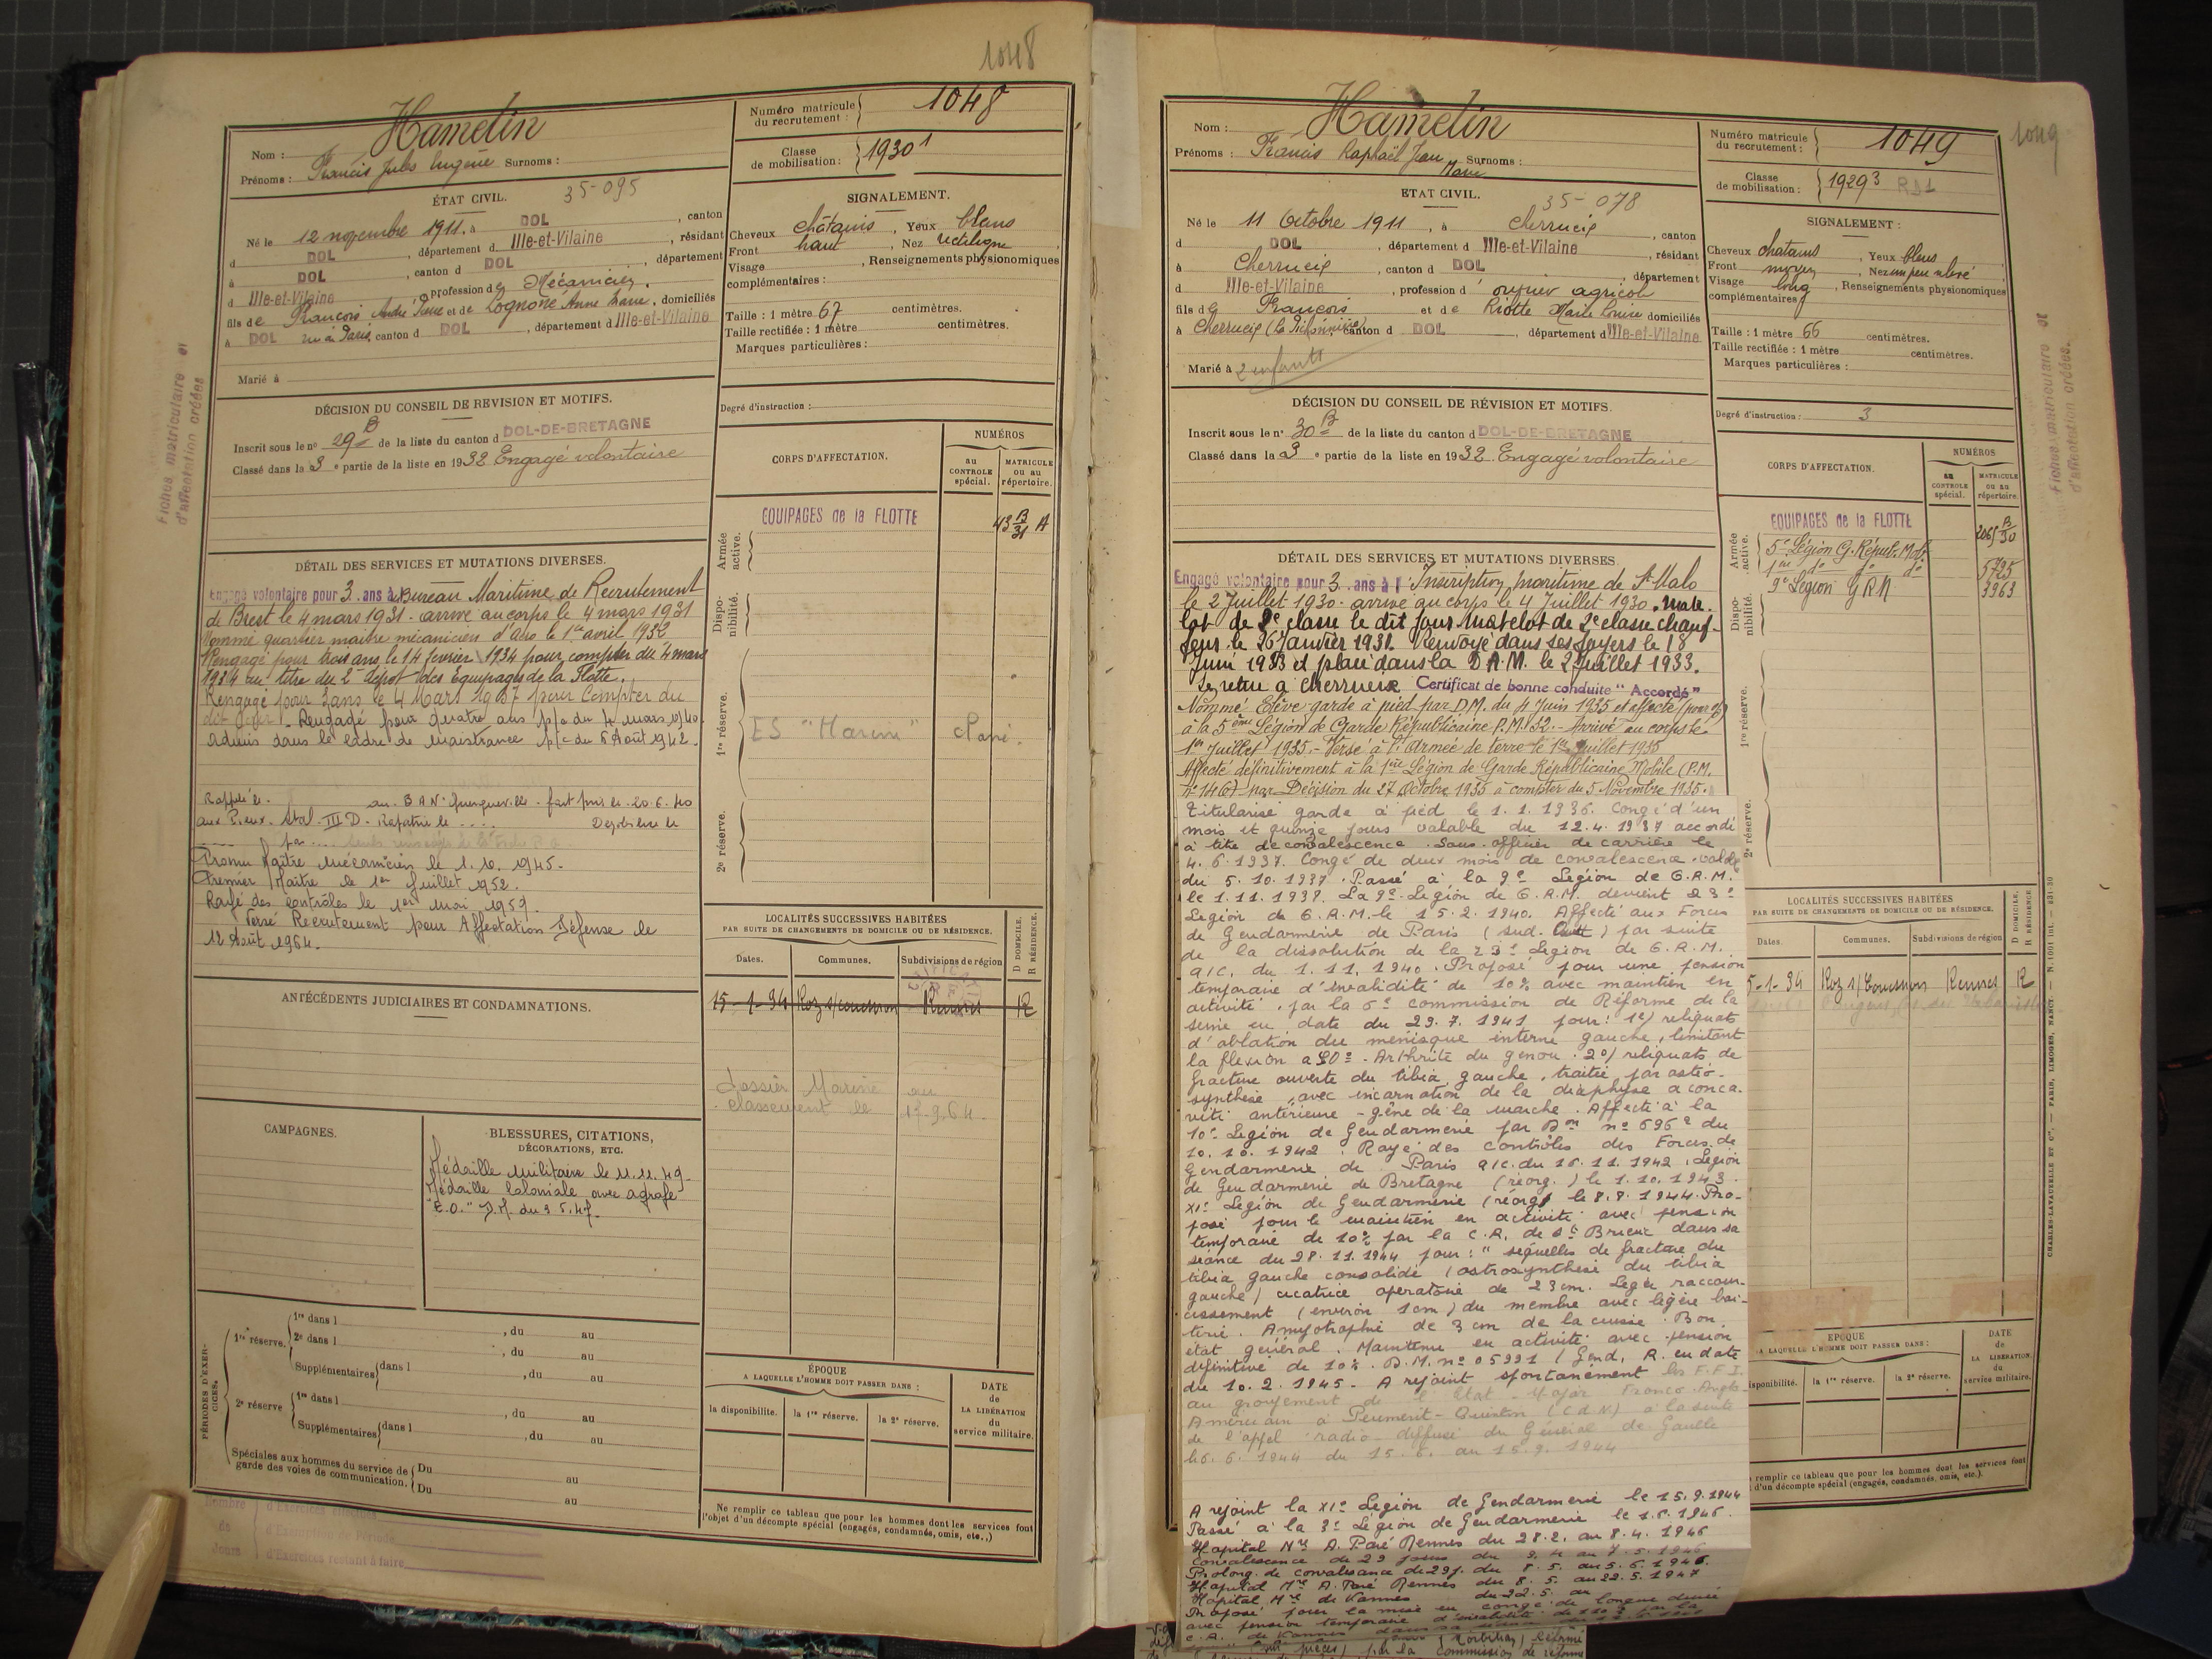 1048
Hamelin
Nom :
Prénoms : Francis Jules Eugène Surnoms :
Numéro matricule du recrutement : 1048
Classe de mobilisation : 1930 1
ÉTAT CIVIL. 35-095
Né le 12 novembre 1911, à DOL, canton
d DOL, département d Ille-et-Vilaine, résidant
à DOL, canton d DOL, département
d Ille-et-Vilaine, profession de Mécanicien.
fils de François André Pierre et de Lognoné Anne Marie, domiciliés
à DOL rue de Paris, canton d DOL, département d Ille-et-Vilaine
Marié à
SIGNALEMENT.
Cheveux châtains, Yeux bleus
Front haut, Nez rectiligne
Visage, Renseignements physionomiques
complémentaires :
Taille : 1 mètre 67 centimètres.
Taille rectifiée : 1 mètre centimètres.
Marques particulières :
Degré d'instruction :
Fiches matriculaire et
d'affectation créées
DÉCISION DU CONSEIL DE REVISION ET MOTIFS.
Inscrit sous le n° 29 B de la liste du canton d DOL-DE-BRETAGNE
Classé dans la 3e partie de la liste en 1932 Engagé volontaire
CORPS D'AFFECTATION.
NUMÉROS
au CONTROLE spécial.
MATRICULE ou au répertoire.
Armée active.
EQUIPAGES de la FLOTTE
43 B/31 A
Disponibilité.
1re réserve.
ES "Marine"
2e réserve.
DÉTAIL DES SERVICES ET MUTATIONS DIVERSES.
Engagé volontaire pour 3 ans à Bureau Maritime de Recrutement
de Brest le 4 mars 1931. arrivé au corps le 4 mars 1931
Nommé quartier maître mécanicien d'aéro le 1er avril 1932
Rengagé pour trois ans le 14 février 1934 pour compter du 4 mars
1934 au titre du 2e dépôt des Equipages de la Flotte.
Rengagé pour 3 ans le 4 Mars 1937 pour compter du
dit jour. Rengagé pour quatre ans p/c du 4 mars 1940.
Admis dans le cadre de maistrance p/c du 6 Août 1942.
Rappelé le. au. B.A.N. Querqueville. fait pris le. 20.6.40
aux Pieux. Stal. III D. Rapatrié le .... Démobilisé le
Promu Maître Mécanicien le 1.10.1945.
Premier Maître le 1er Juillet 1952.
Rayé des contrôles le 1er Mai 1959.
Versé Recrutement pour Affectation Défense le
12 Août 1964.
ANTÉCÉDENTS JUDICIAIRES ET CONDAMNATIONS.
LOCALITÉS SUCCESSIVES HABITÉES
PAR SUITE DE CHANGEMENTS DE DOMICILE OU DE RÉSIDENCE.
Dates. Communes. Subdivisions de région D DOMICILE. R RÉSIDENCE
15-1-34 Roz s/couesnon Rennes R
dossier Marine au
classement le 15.9.64.
CAMPAGNES.
BLESSURES, CITATIONS,
DÉCORATIONS, ETC.
Médaille militaire le 11.11.49.
Médaille Coloniale avec agrafe
"E.O." D.M. du 3.5.47.
PÉRIODES D'EXERCICES.
1re réserve.
1re dans l, du au
2e dans l, du au
Supplémentaires dans l, du au
2e réserve
1re dans l, du au
Supplémentaires dans l, du au
Spéciales aux hommes du service de
garde des voies de communication.
Du au
Du au
Nombre
de
Jours
d'Exercices effectués
d'Exercices restant à faire
ÉPOQUE
A LAQUELLE L'HOMME DOIT PASSER DANS :
la disponibilité. la 1re réserve. la 2e réserve.
DATE DE LA LIBÉRATION du service militaire.
Ne remplir ce tableau que pour les hommes dont les services font
l'objet d'un décompte spécial (engagés, condamnés, omis, etc.,)
1049
Hamelin
Nom :
Prénoms : Francis Raphaël Jean Marie Surnoms :
Numéro matricule du recrutement : 1049
Classe de mobilisation : 1929 3
ETAT CIVIL. 35-078
Né le 11 Octobre 1911, à Cherrueix, canton
d DOL, département d Ille-et-Vilaine, résidant
à Cherrueix, canton d DOL, département
d Ille-et-Vilaine, profession d'ouvrier agricole
fils de François et de Riotte Marie Louise domiciliés
à Cherrueix canton d DOL, département d Ille-et-Vilaine
Marié à 2 enfants
SIGNALEMENT :
Cheveux chatains, Yeux bleus
Front moyen, Nez un peu
Visage long, Renseignements physionomiques
complémentaires
Taille : 1 mètre 66 centimètres.
Taille rectifiée : 1 mètre centimètres.
Marques particulières :
Degré d'instruction : 3
Fiches matriculaire et
d'affectation créées.
DÉCISION DU CONSEIL DE RÉVISION ET MOTIFS.
Inscrit sous le n° 30 B de la liste du canton d DOL-DE-BRETAGNE
Classé dans la 3e partie de la liste en 1932. Engagé volontaire
CORPS D'AFFECTATION.
NUMÉROS
au CONTROLE spécial.
MATRICULE ou au répertoire.
Armée active.
EQUIPAGES de la FLOTTE 2065 B/30
5e Légion G. Républ. Mob.
1re do do do 5725
9e Légion G R M 3963
Disponibilité.
1re réserve.
2e réserve.
DÉTAIL DES SERVICES ET MUTATIONS DIVERSES.
Engagé volontaire pour 3 ans à l'Inscription maritime de St Malo
le 2 Juillet 1930. arrivé au corps le 4 Juillet 1930. Mate-
lot de 3e classe le dit jour Matelot de 2e classe chauf-
feur le 26 Janvier 1931. Renvoyé dans ses foyers le 18
Juin 1933 et placé dans la D.A.M. le 2 Juillet 1933.
Se retire à Cherrueix Certificat de bonne conduite "Accordé"
Nommé Elève garde à pied par D.M. du 4 Juin 1935 et affecté
à la 5ème Légion de Garde Républicaine P.M.152. - Arrivé au corps le
1er Juillet 1935. - Versé à l'Armée de terre le 1er Juillet 1935
Affecté définitivement à la 1ère Légion de Garde Républicaine Mobile (P.M.
N° 146) par Décision du 27 Octobre 1935 à compter du 5 Novembre 1935.
Titularisé garde à pied le 1.1.1936. Congé d'un
mois et quinze jours valable du 12.4.1937 accordé
à titre de convalescence. Sous officier de carrière le
4.6.1937. Congé de deux mois de convalescence. valable
du 5.10.1937. Passé à la 9e Légion de G.R.M.
le 1.11.1937. La 9e Légion de G.R.M. devient 23e
Légion de G.R.M. le 15.2.1940. Affecté aux Forces
de Gendarmerie de Paris (Sud. Ouest) par suite
de la dissolution de la 23e Légion de G.R.M.
a/c. du 1.11.1940. Proposé pour une pension
temporaire d'invalidité de 10% avec maintien en
activité. par la 6e commission de Réforme de la
Seine en date du 29.7.1941 pour : 1°) reliquats
d'ablation du ménisque interne gauche, limitant
la flexion a 90° - Arthrite du genou. 2°) reliquats de
fracture ouverte du tibia gauche, traitée par ostéo-
synthèse, avec incarnation de la diaphyse a conca-
vité antérieure - gêne de la marche. Affecté à la
10e Légion de Gendarmerie par Don n° 696 du
10.10.1942. Rayé des contrôles des Forces de
Gendarmerie de Paris a/c. du 16.11.1942. Légion
de Gendarmerie de Bretagne (réorg.) le 1.10.1943.
XIe Légion de Gendarmerie (réorg) le 8.8.1944. Pro-
posé pour le maintien en activité avec pension
temporaire de 10% par la C.R. de St Brieuc dans sa
séance du 28.11.1944 pour : "séquelles de fracture du
tibia gauche consolidé (ostrosynthèse du tibia
gauche) cicatrice opératoire de 23 cm. Léger raccour-
cissement (environ 1 cm) du membre avec légère boi-
terie. Amyotrophie de 3 cm de la cuisse. Bon
état général. Maintenu en activité avec pension
définitive de 10%. D.M. n° 05991 / Gend. R. en date
du 10.2.1945. - A rejoint spontanément les F.F.I.
au groupement de l'Etat-Major Franco-Anglo-
Américain à Peumerit-Quintin (C d N) à la suite
de l'appel radio-diffusé du Général de Gaulle
du 15.6. au 15.9.1944
A rejoint la XIe Légion de Gendarmerie le 15.9.1944
Passé à la 3e Légion de Gendarmerie le 1.6.1946.
Hopital Mre A. Paré Rennes du 28.2. au 8.4.1946
Convalescence de 29 jours du 9.4 au 7.5.1946
Prolong. de convalescence de 29 j. du 8.5. au 5.6.1946.
Hapital Mre A. Paré Rennes du 8.5. au 22.5.1947
Hôpital Mre de Vannes du 22.5. au
Proposé pour la mise en congé de longue durée
avec pension temporaire d'invalidité de par la
C.R. de Vannes dans sa séance
(Morbihan) Réformé
par la commission de réforme
LOCALITÉS SUCCESSIVES HABITÉES
PAR SUITE DE CHANGEMENTS DE DOMICILE OU DE RÉSIDENCE.
Dates. Communes. Subdivisions de région D DOMICILE. R RÉSIDENCE
5-1-34 Roz s/Couesnon Rennes R
ÉPOQUE
A LAQUELLE L'HOMME DOIT PASSER DANS :
isponibilité. la 1re réserve. la 2e réserve.
DATE DE LA LIBÉRATION du service militaire.
remplir ce tableau que pour les hommes dont les services font
d'un décompte spécial (engagés, condamnés, omis, etc.).
CHARLES-LAVAUZELLE ET Cie. — PARIS, LIMOGES, NANCY. — N. 1001 int.